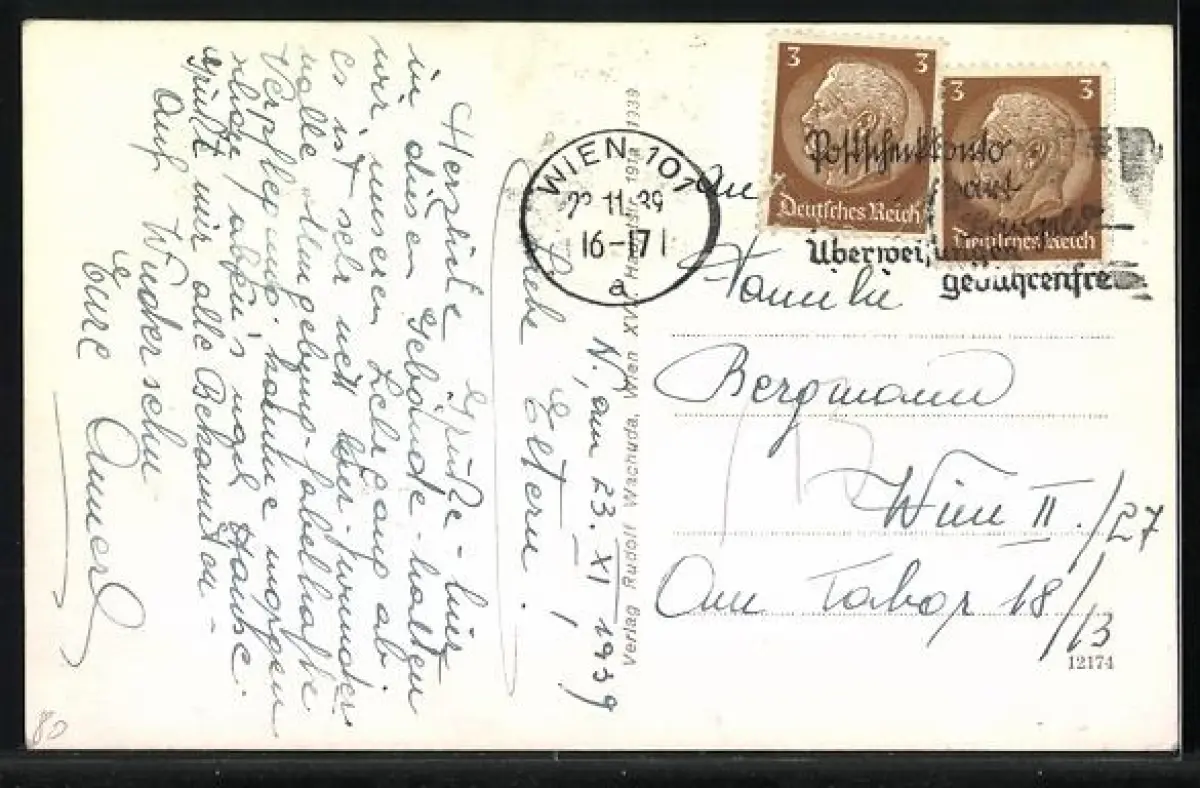 W., am 23. XI. 1939
Liebe Eltern!
Herzliche Grüße - hier
in diesem Gebäude - halten
wir unseren Lehrgang ab.
es ist sehr nett hier, wunder-
volle Umgebung - fabelhafte
Verpflegung; komme morgen
abends nach Hause.
Grüßt mir alle Bekannten -
Auf Wiedersehn
Eure
Verlag Rudolf Wachuda, Wien XV.
1939
WIEN 101
23. 11. 39
16-17
a
3 3
Deutsches Reich
3 3
Deutsches Reich
Postscheckkonto
spart
Überweisungen
gebührenfrei
An
Familie
Bergmann
Wien II./27
Am Tabor 18/13
12174
80